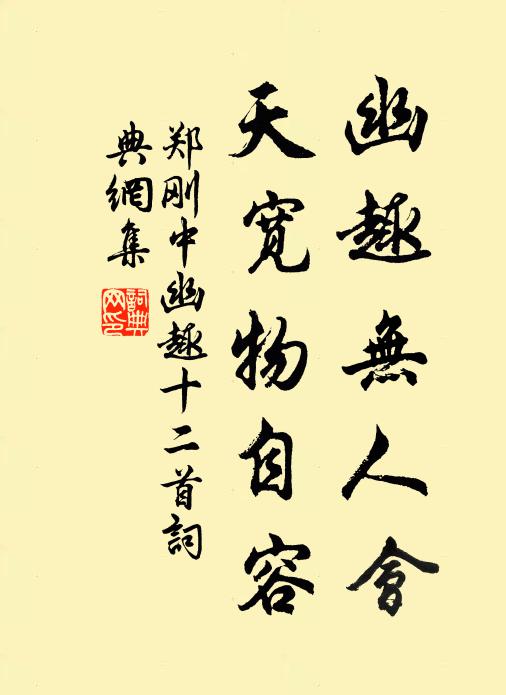 幽趣無人會
天寬物自容
郑刚中幽趣十二首詞
典網集
詞典网印